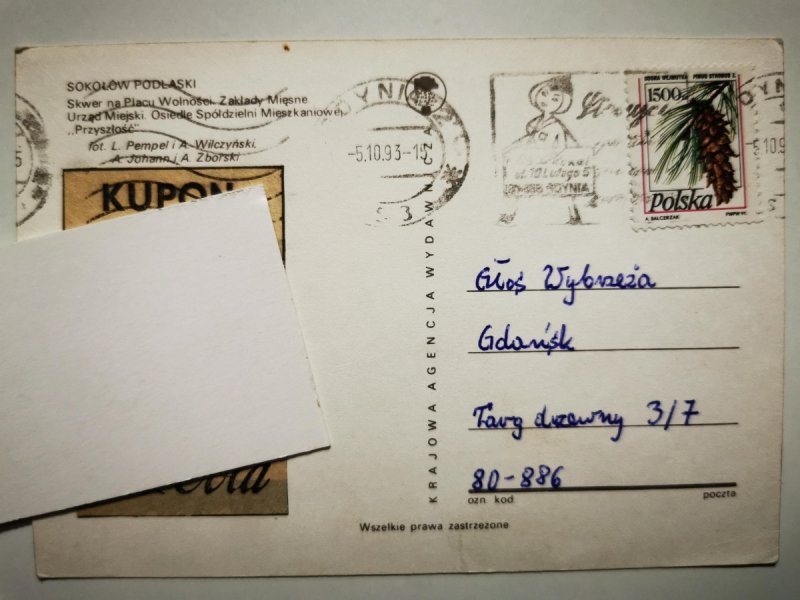 SOKOŁÓW PODLASKI
Skwer na Placu Wolności. Zakłady Mięsne
Urząd Miejski. Osiedle Spółdzielni Mieszkaniowej
„Przyszłość”
fot. L. Pempel i A. Wilczyński,
A. Johann i A. Zborski
KUPON
KRAJOWA AGENCJA WYDAWNICZA
GDYNIA
-5.10.93-
3
ul. 10 Lutego 5
GDYNIA
SOSNA WEJMUTKA PINUS STROBUS L.
1500
Polska
A. BALCERZAK PWPW 93.
5.10.9
Głos Wybrzeża
Gdańsk
Targ drzewny 3/7
80-886
ozn. kod poczta
Wszelkie prawa zastrzeżone